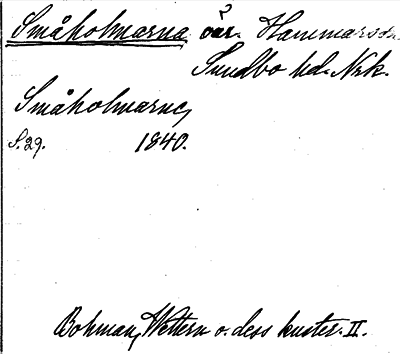 Småholmarna öar. Hammarssn.
Sundbo hd. Nrk.
Småholmarne,
S. 29. 1840.
Bohman, Wettern o. dess kuster. II.